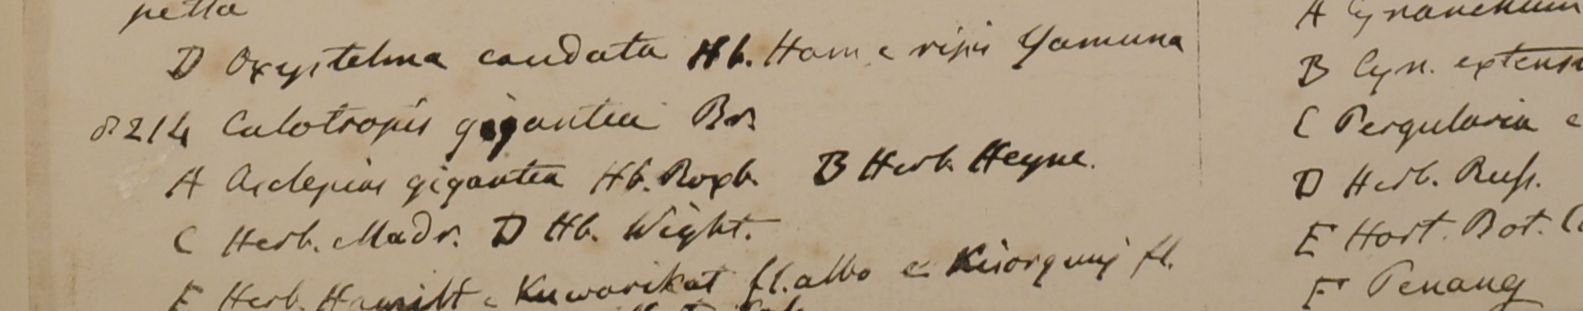 petta
D Oxystelma caudata Hb. Ham. e ripis Yamuna
8214 Calotropis gigantea Br.
A Asclepias gigantea Hb. Roxb. B Herb. Heyne.
C Herb. Madr. D Hb. Wight.
E Herb. Hamilt e Kuwarikat fl. albo e
A Cynanchum
B Cyn. extens
C Pergularia
D Herb. Russ.
E Hort. Bot.
F Penang